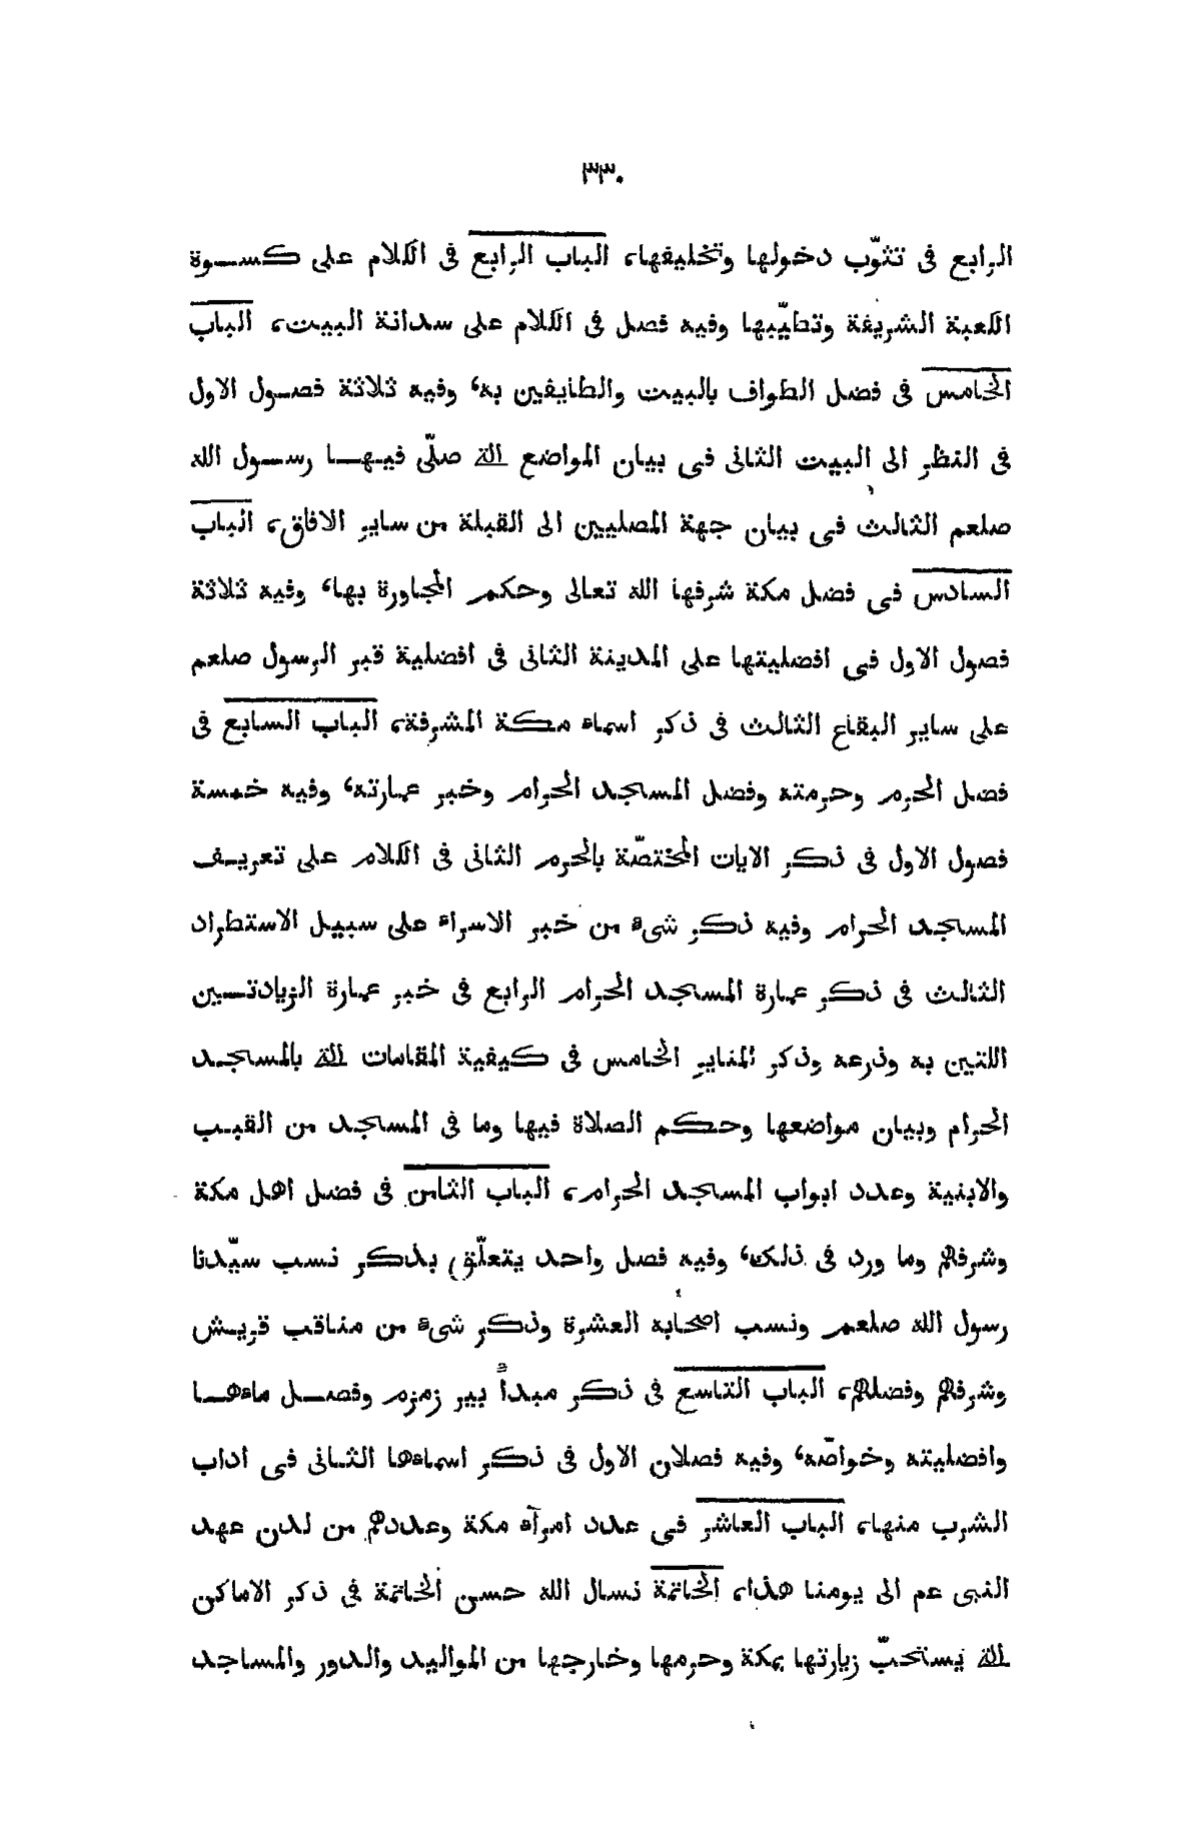 ٣٣٠
الرابع فى تثوّب دخولها وتخليقها، الباب الرابع فى الكلام على كسـوة
الكعبة الشريفة وتطيّبها وفيه فصل فى الكلام على سدانة البيت، الباب
الخامس فى فضل الطواف بالبيت والطايفين به، وفيه ثلاثة فصـول الاول
فى النظر الى البيت الثانى فى بيان المواضع الله صلّى فيـهـا رسـول الله
صلعم الثالث فى بيان جهة المصليين الى القبلة من ساير الافاق، الباب
السادس فى فضل مكة شرفها الله تعالى وحكم المجاورة بها، وفيه ثلاثة
فصول الاول فى افضليتها على المدينة الثانى فى افضلية قبر الرسول صلعم
على ساير البقاع الثالث فى ذكر اسماء مكة المشرفة، الباب السابع فى
فضل الحرم وحرمته وفضل المسجد الحرام وخبر عمارته، وفيه خمسة
فصول الاول فى ذكر الايات المختصّة بالحرم الثانى فى الكلام على تعريـف
المسجد الحرام وفيه ذكر شىء من خبر الاسراء على سبيل الاستطراد
الثالث فى ذكر عمارة المسجد الحرام الرابع فى خبر عمارة الزيادتـين
اللتين به وذرعه وذكر المناير الخامس فى كيفية المقامات لله بالمسجـد
الحرام وبيان مواضعها وحكم الصلاة فيها وما فى المسجد من القبـب
والابنية وعدد ابواب المسجد الحرام، الباب الثامن فى فضل اهل مكة
وشرفهم وما ورد فى ذلك، وفيه فصل واحد يتعلّق بذكر نسب سيّدنا
رسول الله صلعم ونسب اصحابه العشرة وذكر شىء من مناقب قريـش
وشرفهم وفضلهم، الباب التاسع فى ذكر مبدأ بير زمزم وفضـل ماءهـا
وافضليته وخواصّه، وفيه فصلان الاول فى ذكر اسماءها الثـانى فى اداب
الشرب منها، الباب العاشر فى عدد امرآء مكة وعددهم من لدن عهد
النبى عم الى يومنا هذا، الخاتمة نسال الله حسن الخاتمة فى ذكر الاماكن
لله يستحبّ زيارتها بمكة وحرمها وخارجها من المواليد والدور والمساجد